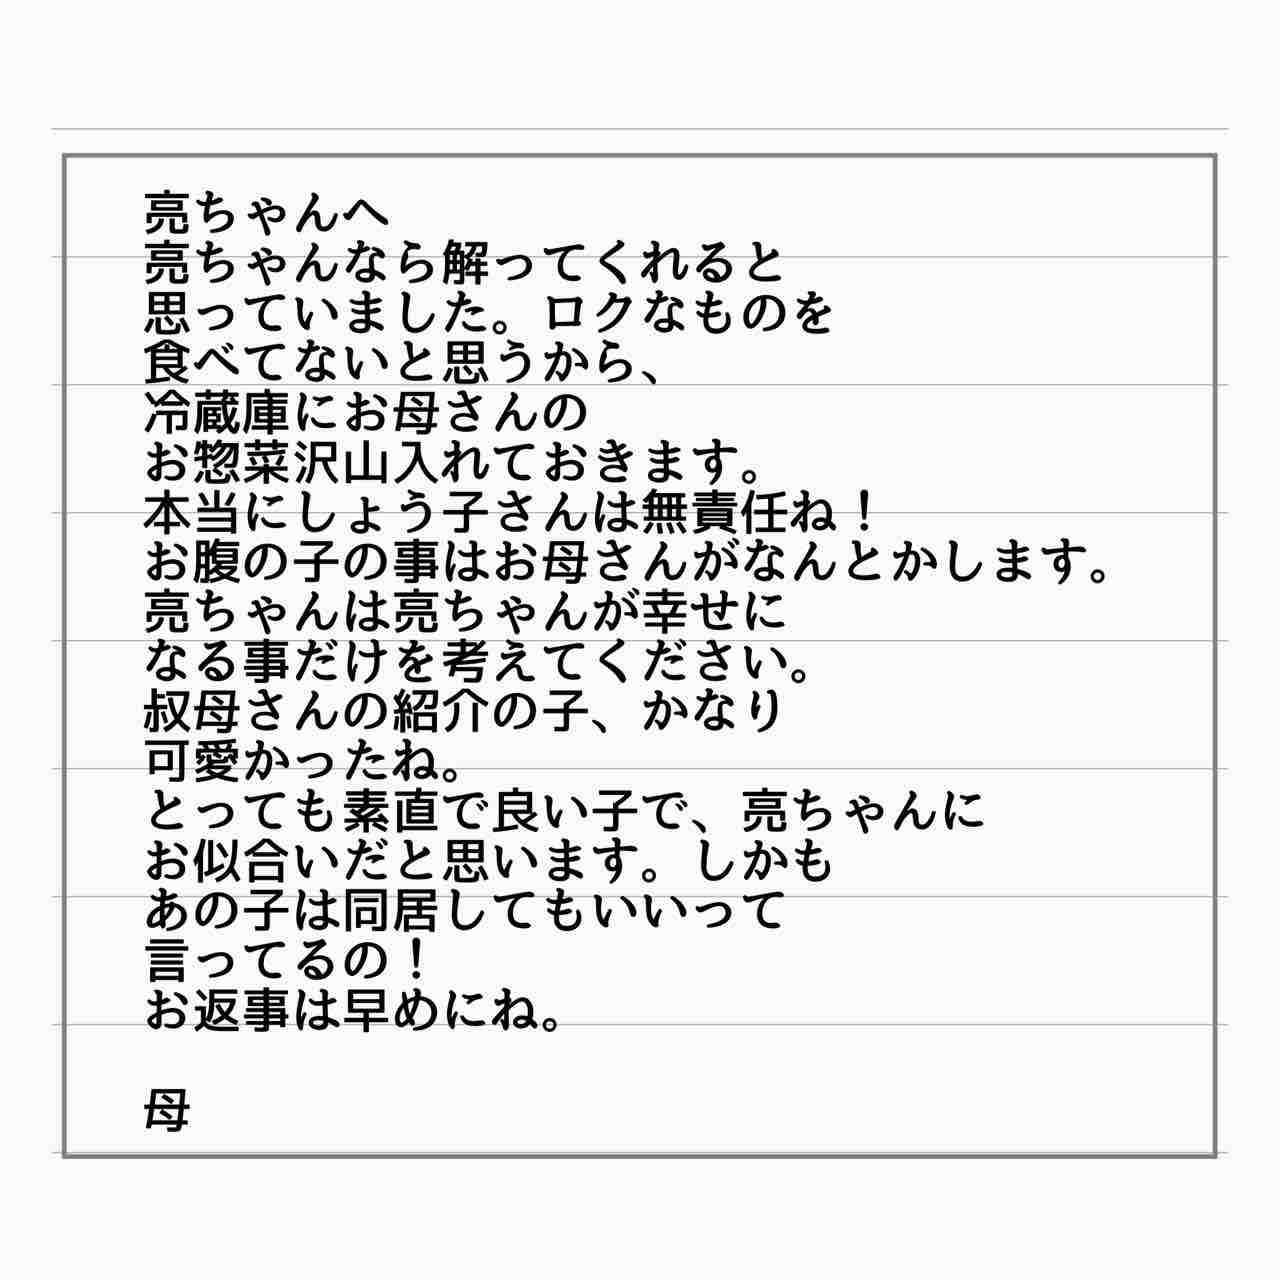 亮ちゃんへ
亮ちゃんなら解ってくれると
思っていました。ロクなものを
食べてないと思うから、
冷蔵庫にお母さんの
お惣菜沢山入れておきます。
本当にしょう子さんは無責任ね！
お腹の子の事はお母さんがなんとかします。
亮ちゃんは亮ちゃんが幸せに
なる事だけを考えてください。
叔母さんの紹介の子、かなり
可愛かったね。
とっても素直で良い子で、亮ちゃんに
お似合いだと思います。しかも
あの子は同居してもいいって
言ってるの！
お返事は早めにね。
母